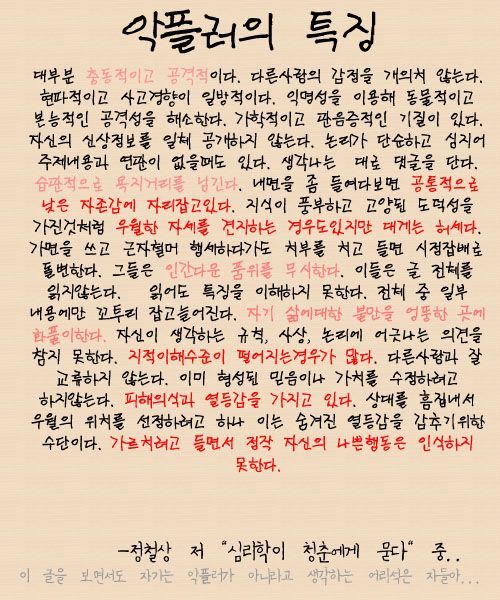 악플러의 특징
대부분 충동적이고 공격적이다. 다른사람의 감정을 개의치 않는다.
현파적이고 사고경향이 일방적이다. 익명성을 이용해 동물적이고
본능적인 공격성을 해소한다. 가학적이고 관음증적인 기질이 있다.
자신의 신상정보를 일체 공개하지 않는다. 논리가 단순하고 심지어
주제내용과 연관이 없을때도 있다. 생각나는 대로 댓글을 단다.
습관적으로 욕지거리를 남긴다. 내면을 좀 들여다보면 공통적으로
낮은 자존감에 자리잡고있다. 지식이 풍부하고 고양된 도덕성을
가진것처럼 우월한 자세를 견지하는 경우도있지만 대게는 허세다.
가면을 쓰고 근자혈머 행세하다가도 치부를 치고 들면 시정잡배로
돌변한다. 그들은 인간다운 품위를 무시한다. 이들은 글 전체를
읽지않는다. 읽어도 특징을 이해하지 못한다. 전체 중 일부
내용에만 꼬투리 잡고늘어진다. 자기 삶에대한 불만을 엉뚱한 곳에
화풀이한다. 자신이 생각하는 규칙, 사상, 논리에 어긋나는 의견을
참지 못한다. 지적이해수준이 떨어지는경우가 많다. 다른사람과 잘
교류하지 않는다. 이미 형성된 믿음이나 가치를 수정하려고
하지않는다. 피해의식과 열등감을 가지고 있다. 상대를 흠집내서
우월의 위치를 선정하려고 하나 이는 숨겨진 열등감을 감추기위한
수단이다. 가르치려고 들면서 정작 자신의 나쁜행동은 인식하지
못한다.
-정철상 저 "심리학이 청춘에게 묻다" 중..
이 글을 보면서도 자기는 악플러가 아니라고 생각하는 어리석은 자들아...